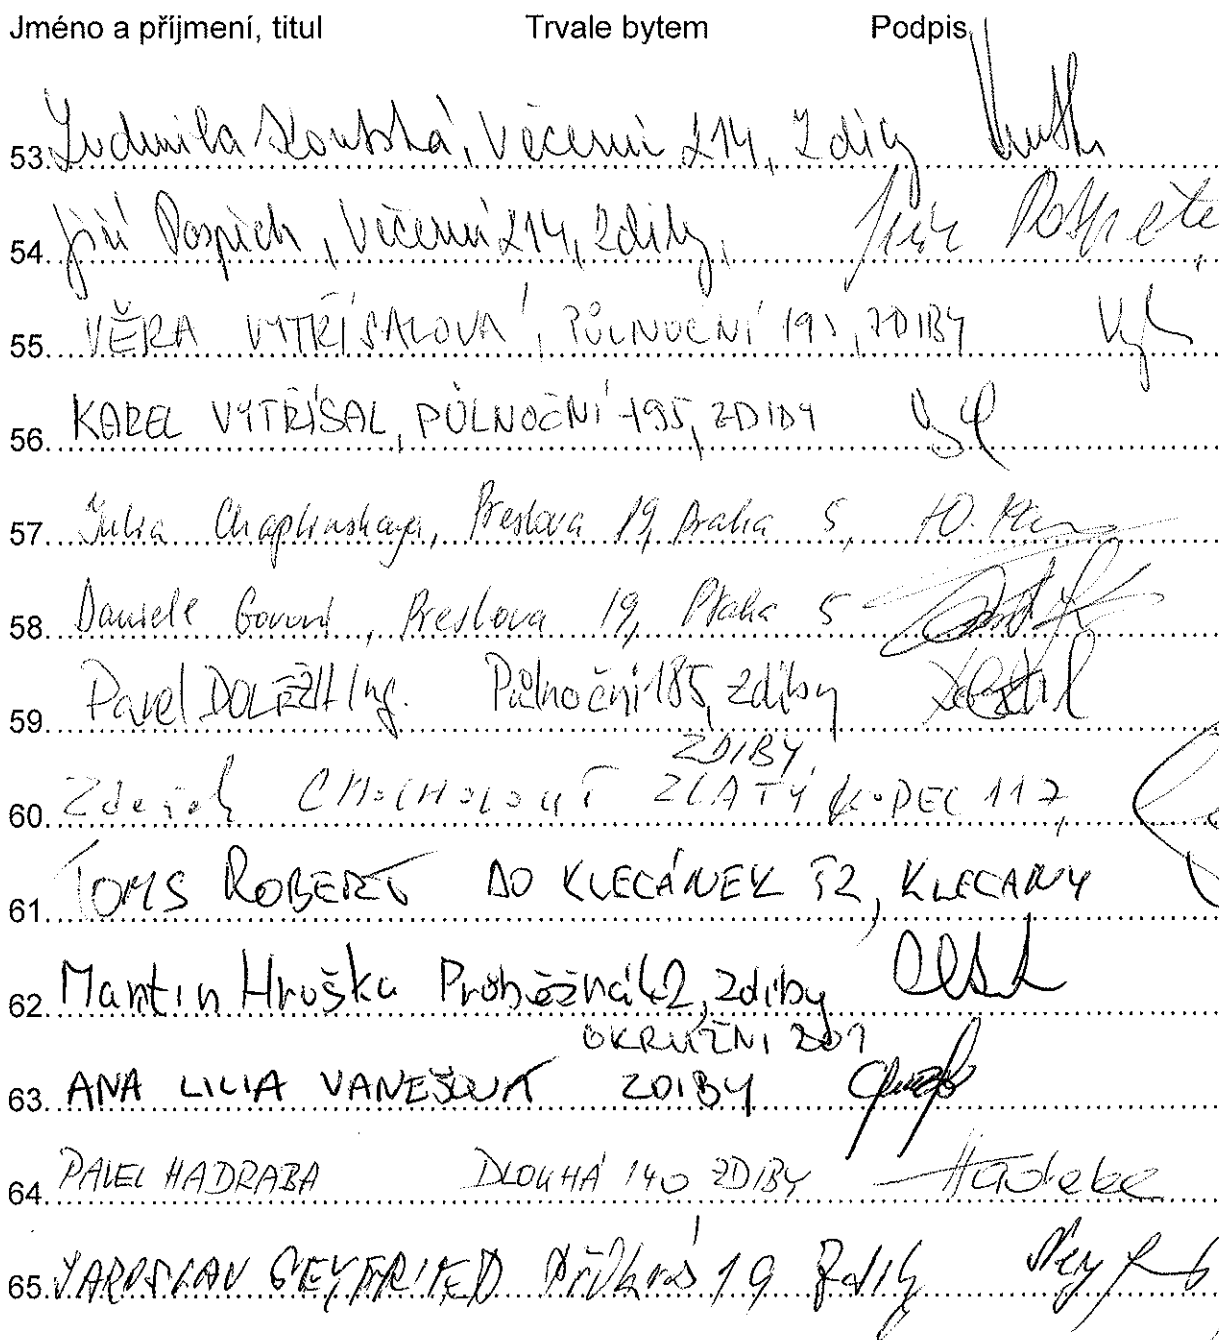 Jméno a příjmení, titul Trvale bytem Podpis
53. Ludmila Koubská, Večerní 214, Zdiby
54. Jiří Pospích, Večerní 214, Zdiby,
55. VĚRA VYTŘÍSALOVÁ, PŮLNOČNÍ 195, ZDIBY
56. KAREL VYTŘÍSAL, PŮLNOČNÍ 195, ZDIBY
57. Julia Chaplinskaya, Preslova 19, Praha 5,
58. Daniele Govoni, Preslova 19, Praha 5
59. Pavel DOLEŽAL Ing. Půlnoční 185, Zdiby
ZDIBY,
60. Zdeněk CHOCHOLOUŠ ZLATÝ KOPEC 117,
61. TOMS ROBERT DO KLECÁNEK 52, KLECANY
62. Martin Hruška Průběžná 42, Zdiby
OKRUŽNI 201
63. ANA LILIA VANEŠOVA ZDIBY
64. PAVEL HADRABA DLOUHÁ 140 ZDIBY Hadraba
65. JAROSLAV SEYFRIED Příkrá 19 Zdiby